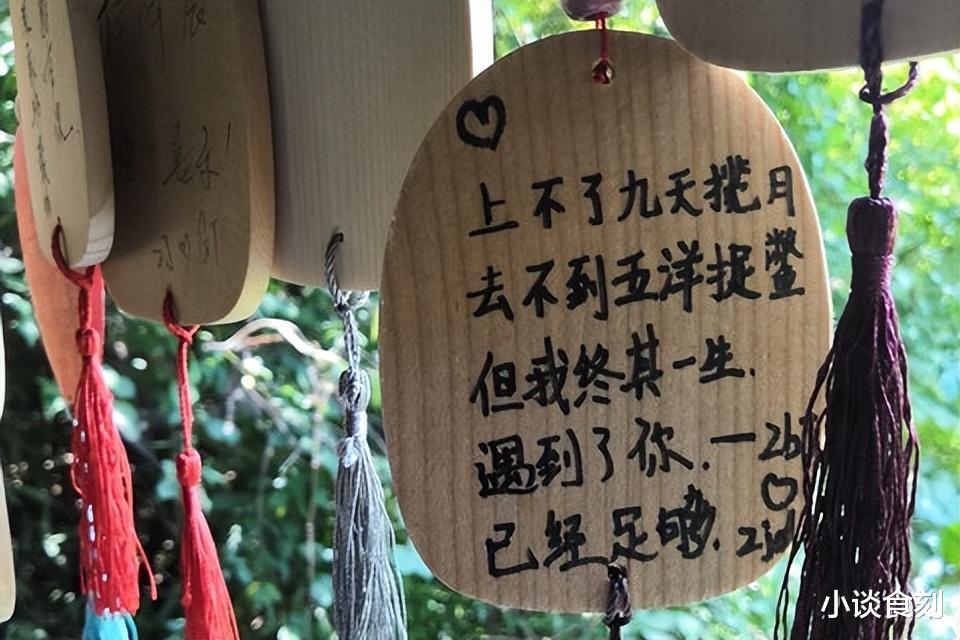 上不了九天揽月
去不到五洋捉鳖
但我终其一生.
遇到了你.
已经足够.
小谈食刻